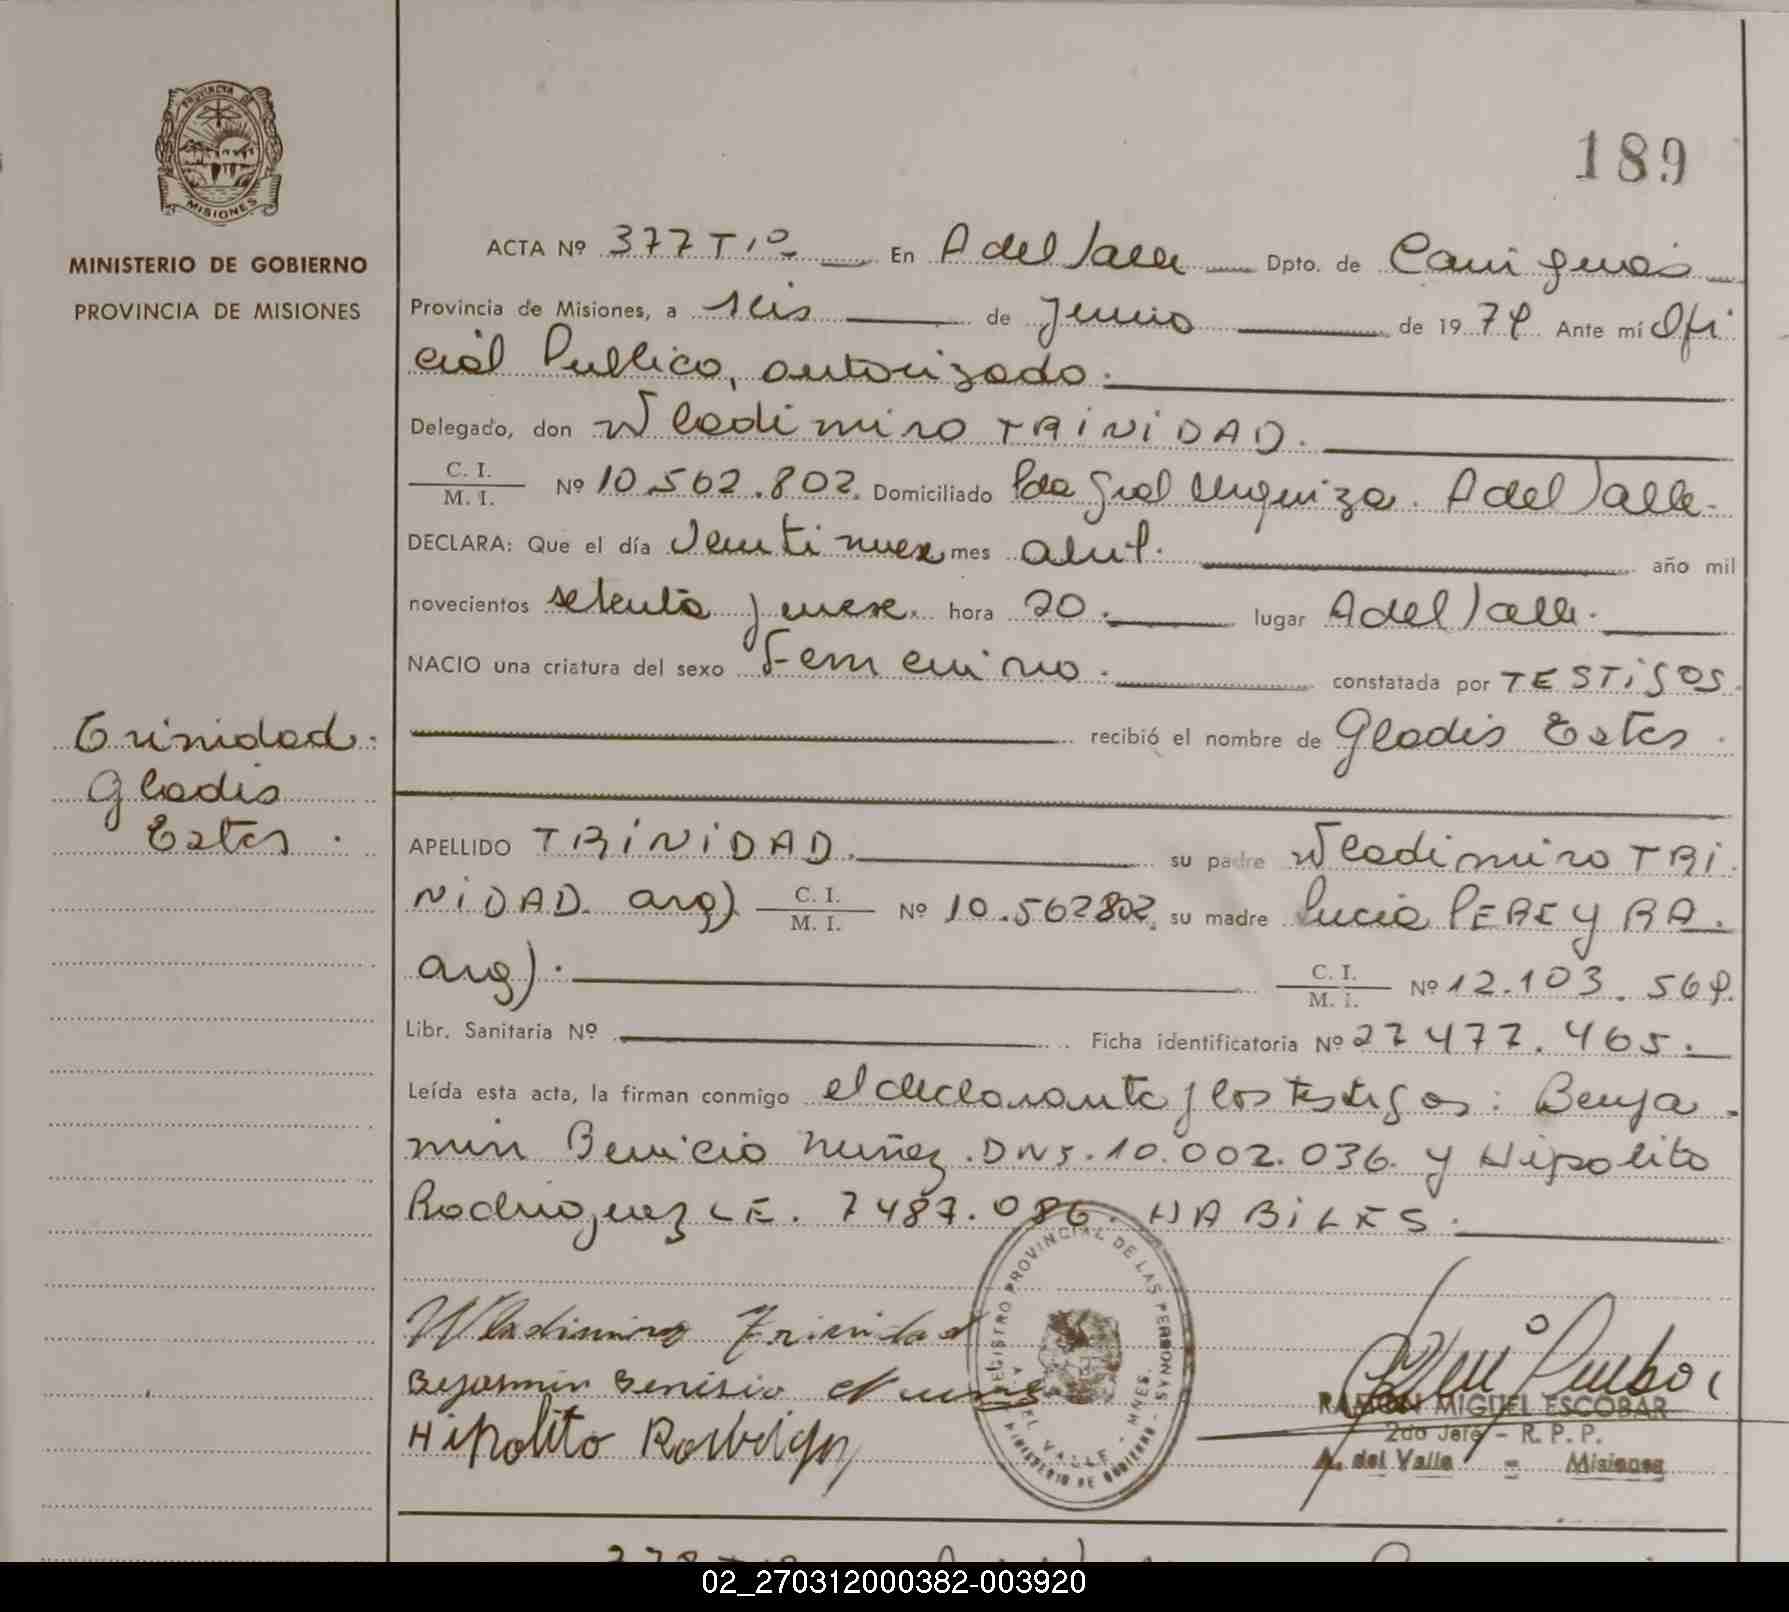 PROVINCIA DE
MISIONES
MINISTERIO DE GOBIERNO
PROVINCIA DE MISIONES
189
ACTA Nº 377 Tº 1º En A del Valle Dpto. de Cainguas
Provincia de Misiones, a seis de Junio de 1979 Ante mí Ofi
cial Publico, autorizado.
Delegado, don Wladimiro TRINIDAD.
C. I.
M. I.
Nº 10.562.802. Domiciliado Pda Gral Urquiza. A del Valle.
DECLARA: Que el día Veintinueve mes abril. año mil
novecientos setenta y nueve. hora 20. lugar A del Valle.
NACIO una criatura del sexo Femenino. constatada por TESTIGOS.
recibió el nombre de Gladis Ester.
Trinidad.
Gladis
Ester.
APELLIDO TRINIDAD. su padre Wladimiro TRI
NIDAD. arg) C. I.
M. I. Nº 10.562802, su madre Lucia PEREYRA.
arg). C. I.
M. I. Nº 12.103.569.
Libr. Sanitaria Nº Ficha identificatoria Nº 27477.465.
Leída esta acta, la firman conmigo el declarante y los testigos: Benja
min Benicio Nuñez. DNI. 10.002.036. y Hipolito
Rodriguez LE. 7487.086. HABILES.
REGISTRO PROVINCIAL DE LAS PERSONAS
A. DEL VALLE - MNES.
MINISTERIO DE GOBIERNO
Wladimiro Trinidad
Bejasmin Benisio Nunes
Hipolito
RAMON MIGUEL ESCOBAR
2do Jefe - R. P. P.
A. del Valle - Misiones
02_270312000382-003920